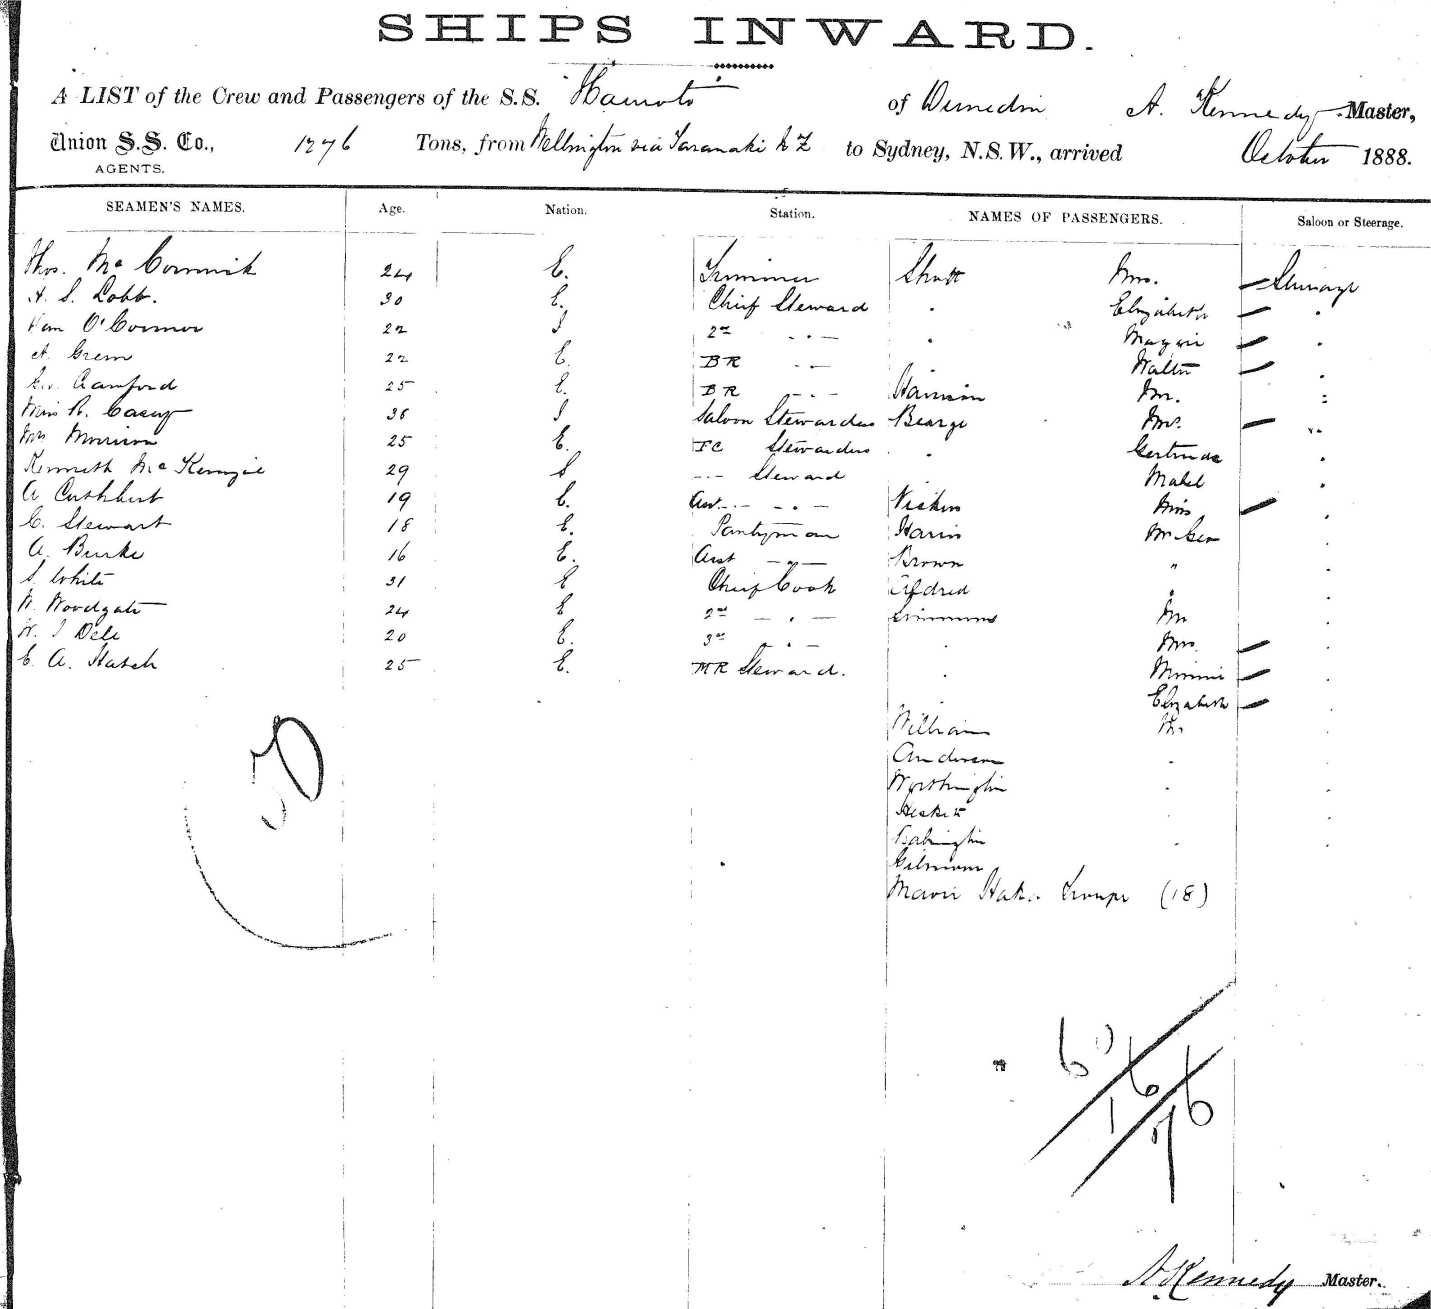 SHIPS INWARD.
A LIST of the Crew and Passengers of the S.S. Hauroto of Dunedin A. Kennedy Master,
Union S.S. Co., 1276 Tons, from Wellington via Taranaki N Z to Sydney, N.S.W., arrived October 1888.
AGENTS.
SEAMEN'S NAMES. Age. Nation. Station. NAMES OF PASSENGERS. Saloon or Steerage.
Thos. Mc Cormick 24 E. Trimmer Shutt Mrs. — Steerage
A. S. Lobb. 30 E. Chief Steward . Elizabeth — .
Wm O'Connor 22 I 2nd . . — . Maggie — .
A. Green 22 E. BR . — Walter — .
Geo. Crawford 25 E. BR — . — Harrison Mr. :
Miss R. Casey 36 I Saloon Stewardess Bearge Mrs. — ..
Mrs Morrison 25 E. FC Stewardess . Gertrude .
Kenneth Mc Kenzie 29 S - . - Steward Mabel .
A Cuthbert 19 E. Asst. - . - Miss — .
C. Stewart 18 E. Pantryman Harris Mr Geo .
A. Burke 16 E. Asst — „ — Brown " .
S. White 31 E Chief Cook Aldred " .
W. Woodgate 24 E 2nd — . — Simmons Mr .
W. J Dell 20 E. 3rd . . — . Mrs. — .
E. A. Hatch 25 E. MR Steward. . Minnie — .
. Elizabeth — .
William Mr. .
Anderson . .
Worthington . .
Heskett . .
Babington . .
Gilmour
Maori Haka Troupe (18)
60
16
76
A. Kennedy Master.